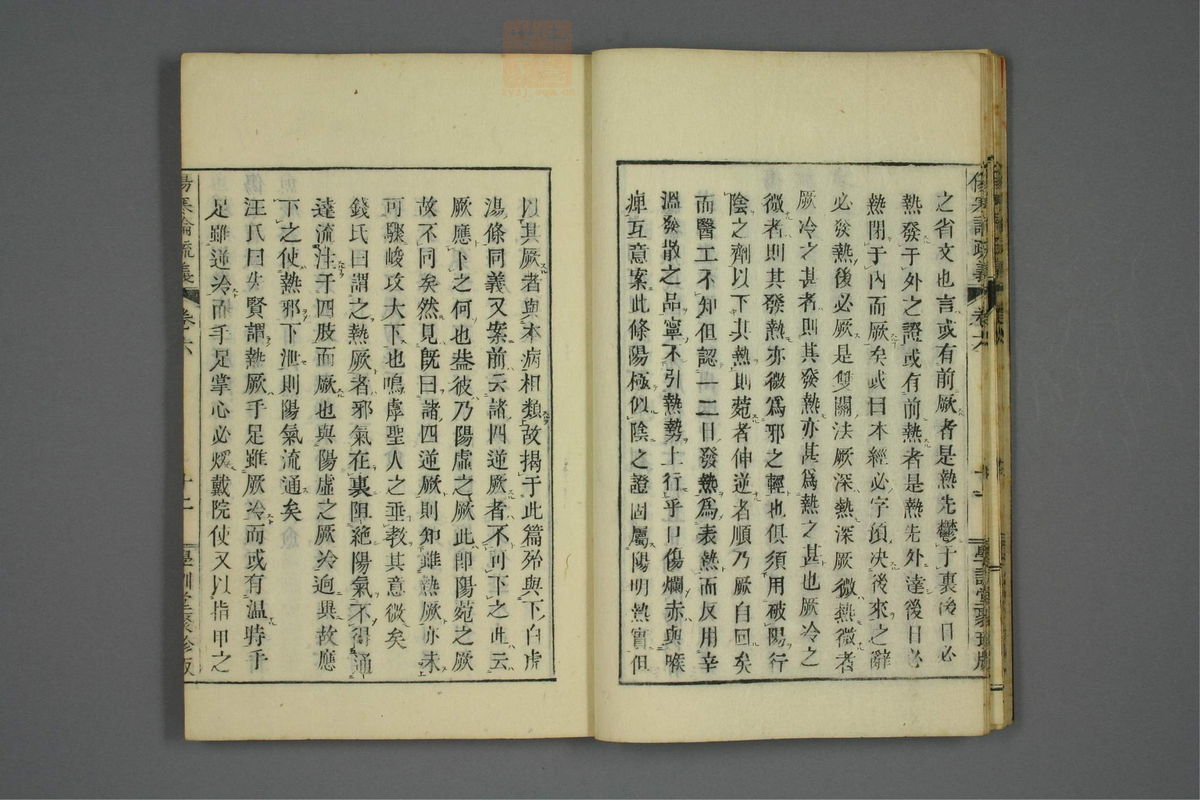 之省文也言或有前厥者是熱先鬱于裏後日必
熱發于外之證或有前熱者是熱先外達後日必
熱閉于內而厥矣或曰本經必字預决後來之辭
必發熱後必厥是雙關法厥深熱深厥微熱微者
厥冷之甚者則其發熱亦甚爲熱之甚也厥冷之
微者則其發熱亦微爲邪之輕也俱須用破陽行
陰之劑以下其熱則菀者伸逆者順乃厥自回矣
而醫工不知但認一二日發熱爲表熱而反用辛
溫發散之品寧不引熱勢上行乎口傷爛赤與喉
痺互意案此條陽極似陰之證固屬陽明熱實但
傷寒論疏義
卷六
學訓堂聚珍版
以其厥者與本病相類故揭于此篇殆與下白虎
湯條同義又案前云諸四逆厥者不可下之此云
厥應下之何也葢彼乃陽虛之厥此卽陽菀之厥
故不同矣然見旣曰諸四逆厥則知雖熱厥亦未
可驟峻攻大下也嗚虖聖人之垂教其意微矣
錢氏曰謂之熱厥者邪氣在裏阻絕陽氣不得通
達流注于四肢而厥也與陽虛之厥冷迥異故應
下之使熱邪下泄則陽氣流通矣
汪氏曰先賢謂熱厥手足雖厥冷而或有溫時手
足雖逆冷而手足掌心必煖戴院使又以指甲之
傷寒論疏義
卷六
學訓堂聚珍版